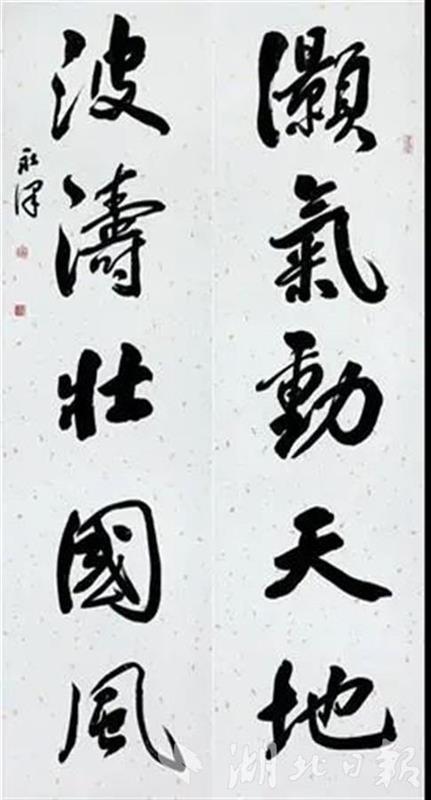 灝氣動天地
波濤壯國風
湖北日報